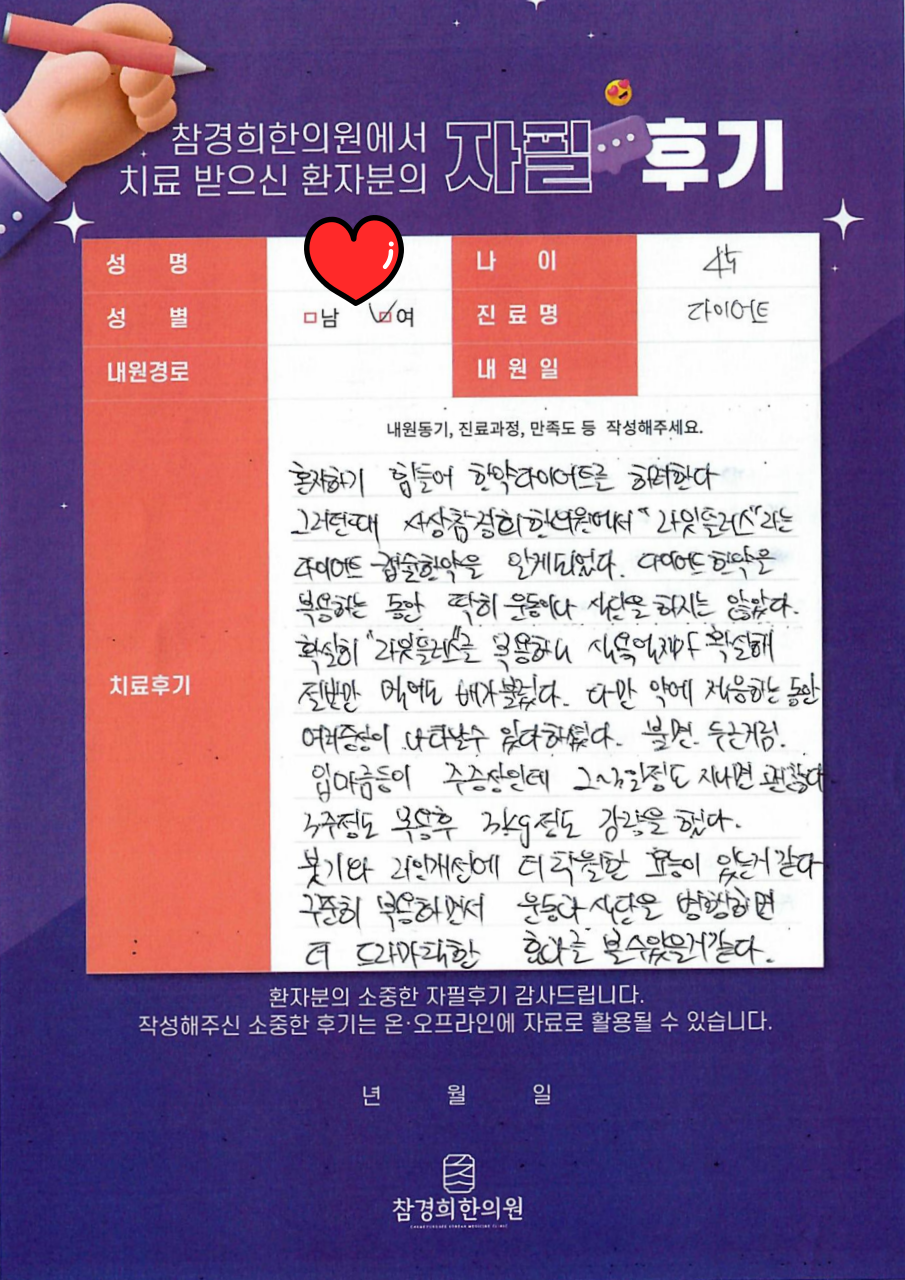 참경희한의원에서
치료 받으신 환자분의 자필 후기
성 명
나 이 45
성 별 □남 □여
진료명 다이어트
내원경로
내원일
내원동기, 진료과정, 만족도 등 작성해주세요.
치료후기
혼자하기 힘들어 한약다이어트를 하려한다
그러던때 사상참경희한의원에서 "라윗플러스"라는
다이어트 캡슐한약을 알게되었다. 다이어트한약을
복용하는 동안 딱히 운동이나 식단을 하지는 않았다.
확실히 "라윗플러스"를 복용하니 식욕억제가 확실해
절반만 먹어도 배가불렀다. 다만 약에 적응하는동안
여러증상이 나타날수 있다하셨다. 불면. 두근거림.
입마름등이 주증상인데 2~3일정도 지나면 괜찮다
3주정도 복용후 3kg정도 감량을 했다.
붓기와 라인개선에 더 탁월한 효능이 있는거같다
꾸준히 복용하면서 운동과 식단을 병행하면
더 드라마틱한 효과를 볼수있을거같다.
환자분의 소중한 자필후기 감사드립니다.
작성해주신 소중한 후기는 온·오프라인에 자료로 활용될 수 있습니다.
년 월 일
참경희한의원